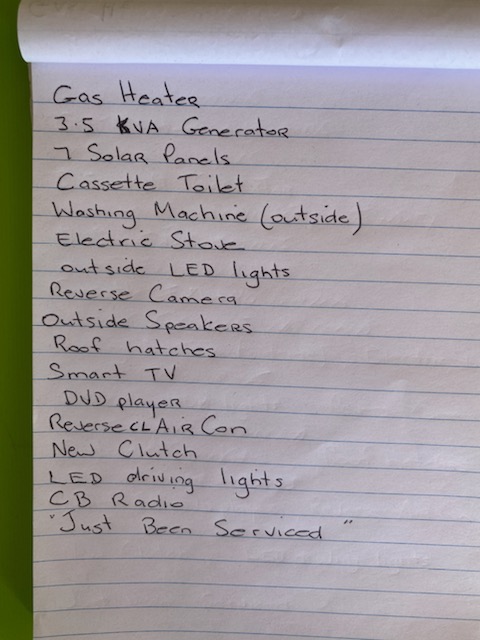 Gas Heater
3.5 KVA Generator
7 Solar Panels
Cassette Toilet
Washing Machine (outside)
Electric Stove
outside LED lights
Reverse Camera
Outside Speakers
Roof hatches
Smart TV
DVD player
Reverse CL Air Con
New Clutch
LED driving lights
CB Radio
"Just Been Serviced"